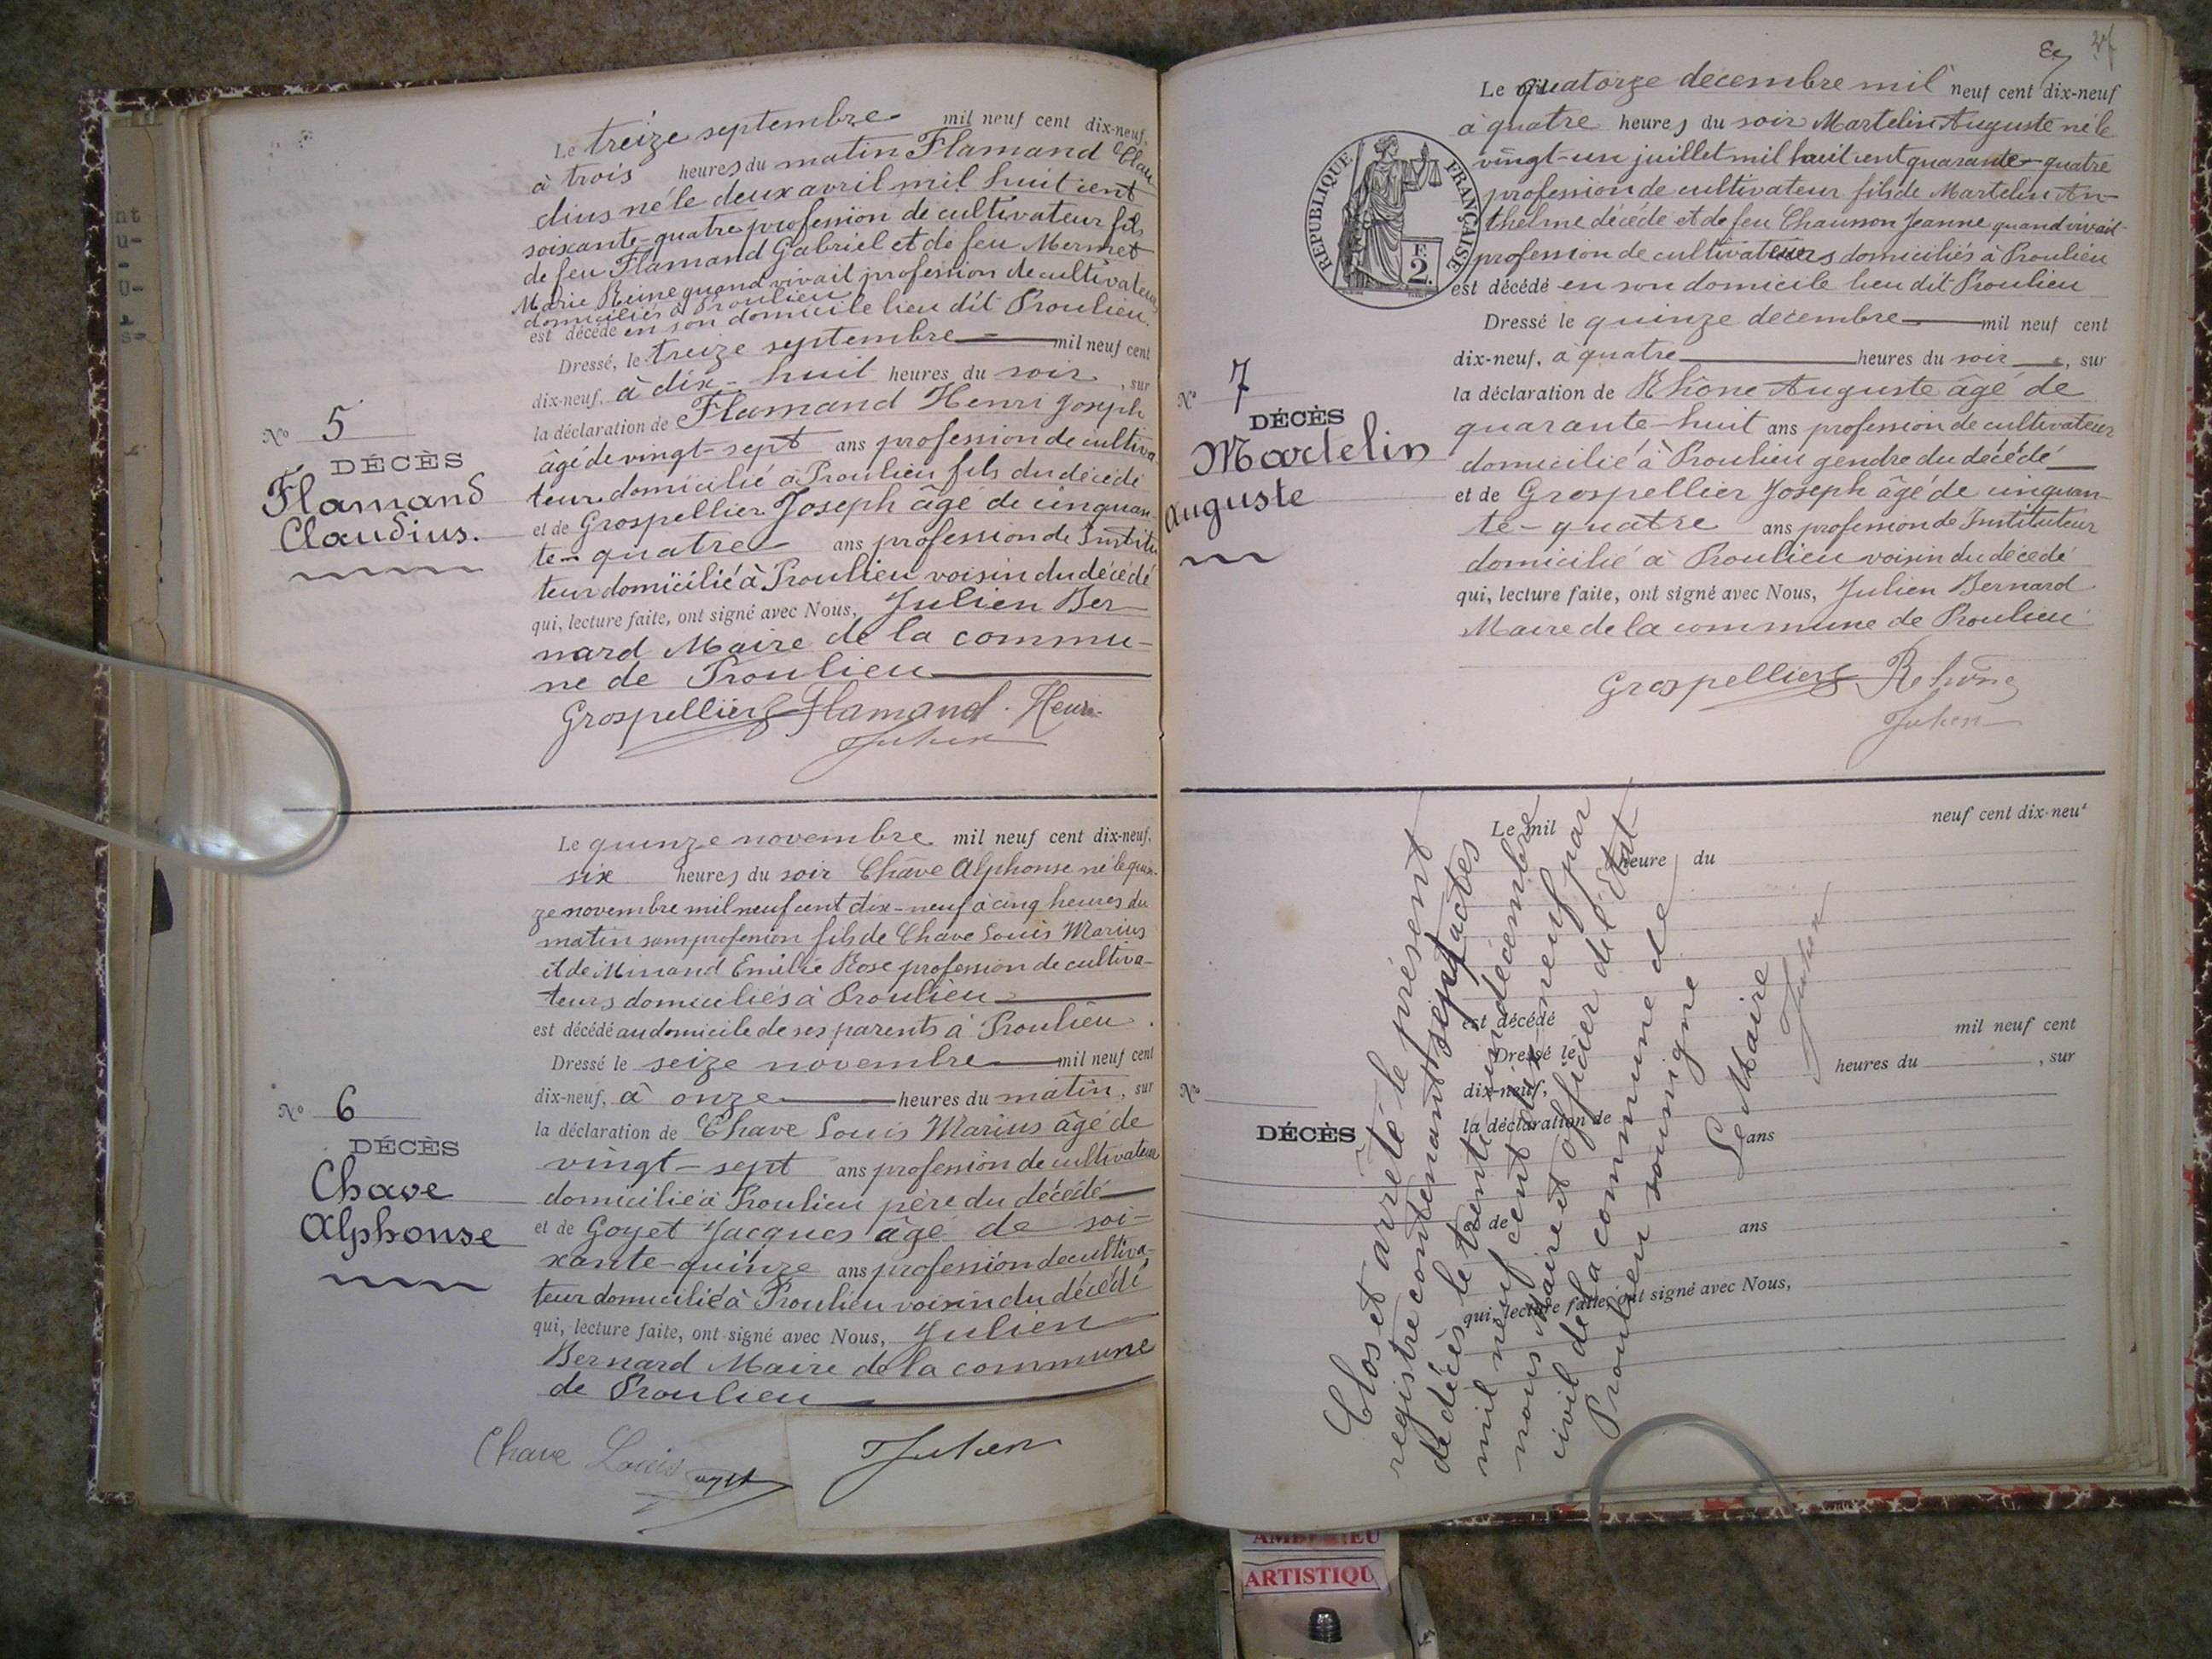 Le treize septembre mil neuf cent dix-neuf,
à trois heures du matin Flamand Clau
dius né le deux avril mil huit cent
soixante-quatre profession de cultivateur fils
de feu Flamand Gabriel et de feu Mermet
Marie Reine quand vivait profession de cultivateurs
domiciliés à Proulieu
est décédé en son domicile lieu dit Proulieu.
Dressé, le treize septembre mil neuf cent
dix-neuf, à dix-huit heures du soir, sur
la déclaration de Flamand Henri Joseph
âgé de vingt-sept ans profession de cultiva
teur domicilié à Proulieu fils du décédé
et de Grospellier Joseph âgé de cinquan
te-quatre ans profession de Institu
teur domicilié à Proulieu voisin du décédé
qui, lecture faite, ont signé avec Nous, Julien Ber-
nard Maire de la commu-
ne de Proulieu
Grospellier Flamand. Henri
Julien
No 5
DÉCÈS
Flamand
Claudius.
Le quinze novembre mil neuf cent dix-neuf,
six heures du soir Chave Alphonse né le quin-
ze novembre mil neuf cent dix-neuf à cinq heures du
matin sans profession fils de Chave Louis Marius
et de Minand Emilie Rose profession de cultiva-
teurs domiciliés à Proulieu
est décédé au domicile de ses parents à Proulieu.
Dressé le seize novembre mil neuf cent
dix-neuf, à onze heures du matin, sur
la déclaration de Chave Louis Marius âgé de
vingt-sept ans profession de cultivateur
domicilié à Proulieu père du décédé
et de Goyet Jacques âgé de soi-
xante-quinze ans profession de cultiva-
teur domicilié à Proulieu voisin du décédé
qui, lecture faite, ont signé avec Nous, Julien
Bernard Maire de la commune
de Proulieu
Chave Louis
Julien
No 6
DÉCÈS
Chave
Alphonse
Le quatorze decembre mil neuf cent dix-neuf
à quatre heures du soir Martelin Auguste né le
vingt-un juillet mil huit cent quarante-quatre
profession de cultivateur fils de Martelin An-
thelme décédé et de feu Chausson Jeanne quand vivait
profession de cultivateurs domiciliés à Proulieu
est décédé en son domicile lieu dit Proulieu
Dressé le quinze decembre mil neuf cent
dix-neuf, à quatre heures du soir, sur
la déclaration de Rhône Auguste âgé de
quarante-huit ans profession de cultivateur
domicilié à Proulieu gendre du décédé
et de Grospellier Joseph âgé de cinquan-
te-quatre ans profession de Instituteur
domicilié à Proulieu voisin du décédé
qui, lecture faite, ont signé avec Nous, Julien Bernard
Maire de la commune de Proulieu
Grospellier Rhône
Julien
RÉPUBLIQUE FRANÇAISE
2 F.
No 7
DÉCÈS
Martelin
Auguste
Le mil neuf cent dix-neuf
heure du
est décédé
Dressé le mil neuf cent
dix-neuf, heures du , sur
la déclaration de
ans
et de
ans
qui, lecture faite, ont signé avec Nous,
No
DÉCÈS
Clos et arrêté le présent
registre contenant sept actes
de décès le trente un décembre
mil neuf cent dix neuf par
nous Maire et officier de l'Etat
civil de la commune de
Proulieu soussigné
Le Maire
Julien
ARTISTIQU